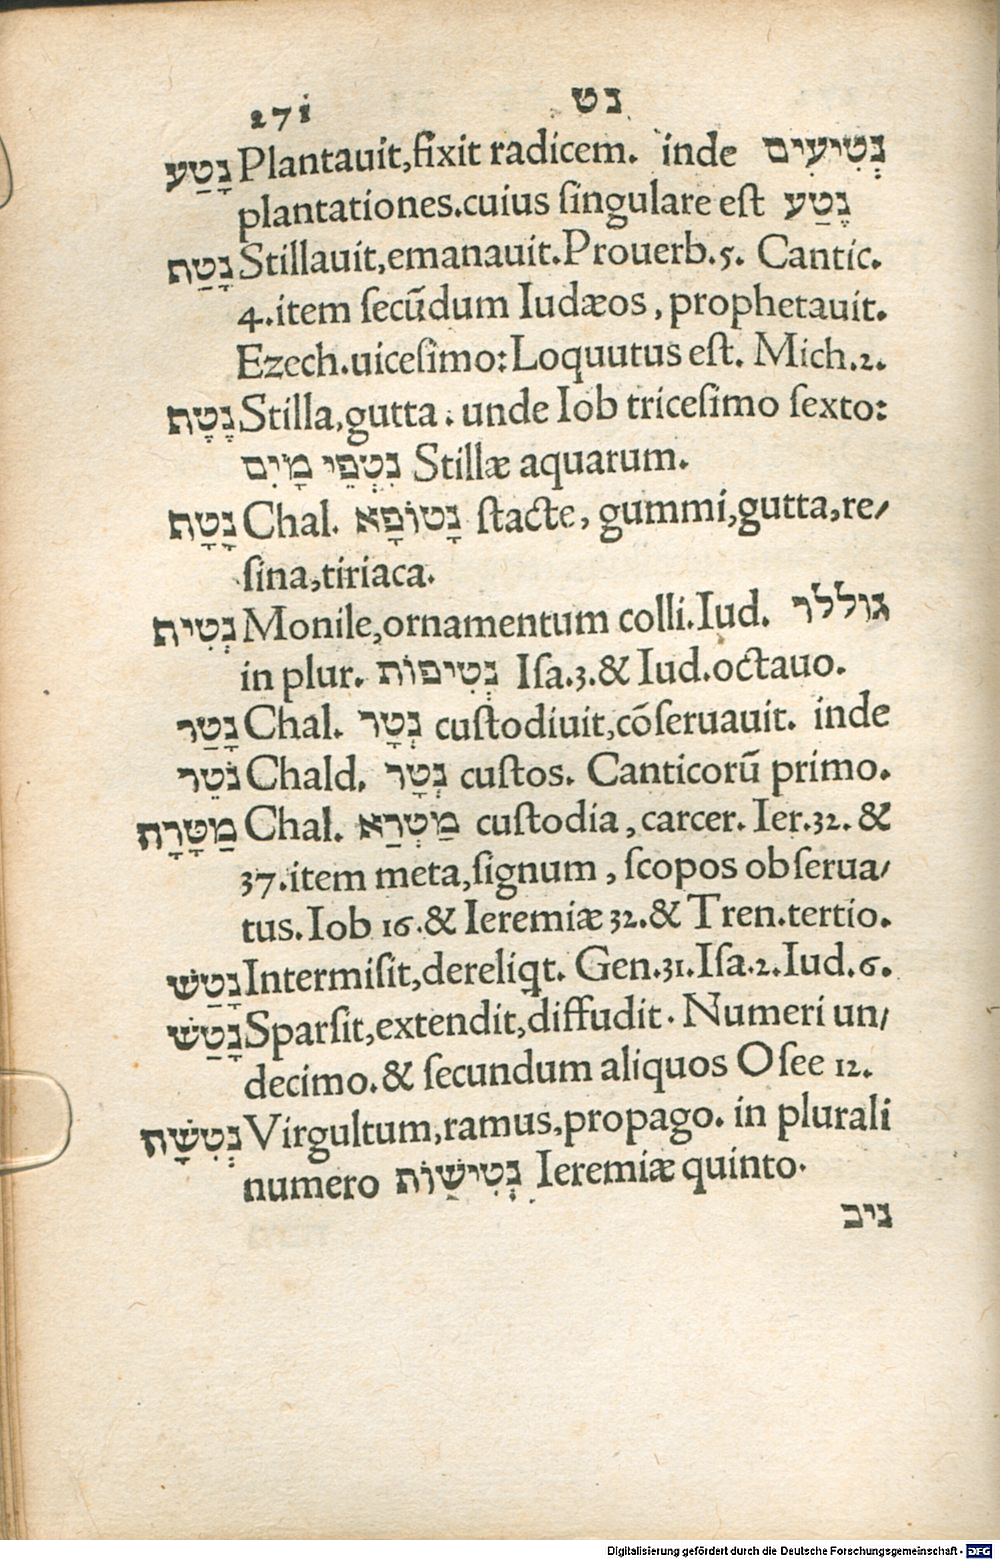 271 נט
נָטַע Plantauit,fixit radicem. inde נְטִיעִים
plantationes.cuius singulare est נֶטַע
נָטַף Stillauit,emanauit.Prouerb.5. Cantic.
4.item secũdum Iudæos, prophetauit.
Ezech.uicesimo:Loquutus est. Mich.2.
נֶטֶף Stilla,gutta. unde Iob tricesimo sexto:
נִטְפֵי מָיִם Stillæ aquarum.
נָטָף Chal. נָטוֹפָא stacte, gummi,gutta,re/
sina,tiriaca.
נְטִיף Monile,ornamentum colli.Iud. גוללר
in plur. נְטִיפוֹת Isa.3.& Iud.octauo.
נָטַר Chal. נְטָר custodiuit,cõseruauit. inde
נֹטֵר Chald. נְטָר custos. Canticorũ primo.
מַטָּרָה Chal. מַטְרַא custodia, carcer. Ier.32. &
37.item meta,signum, scopos obserua/
tus.Iob 16.& Ieremiæ 32.& Tren.tertio.
נָטַשׁ Intermisit,dereliqt. Gen.31.Isa.2.Iud.6.
נָטַשׁ Sparsit,extendit,diffudit. Numeri un/
decimo.& secundum aliquos Osee 12.
נְטִשָׁה Virgultum,ramus,propago. in plurali
numero נְטִישׁוֹת Ieremiæ quinto.
ניב
Digitalisierung gefördert durch die Deutsche Forschungsgemeinschaft - DFG